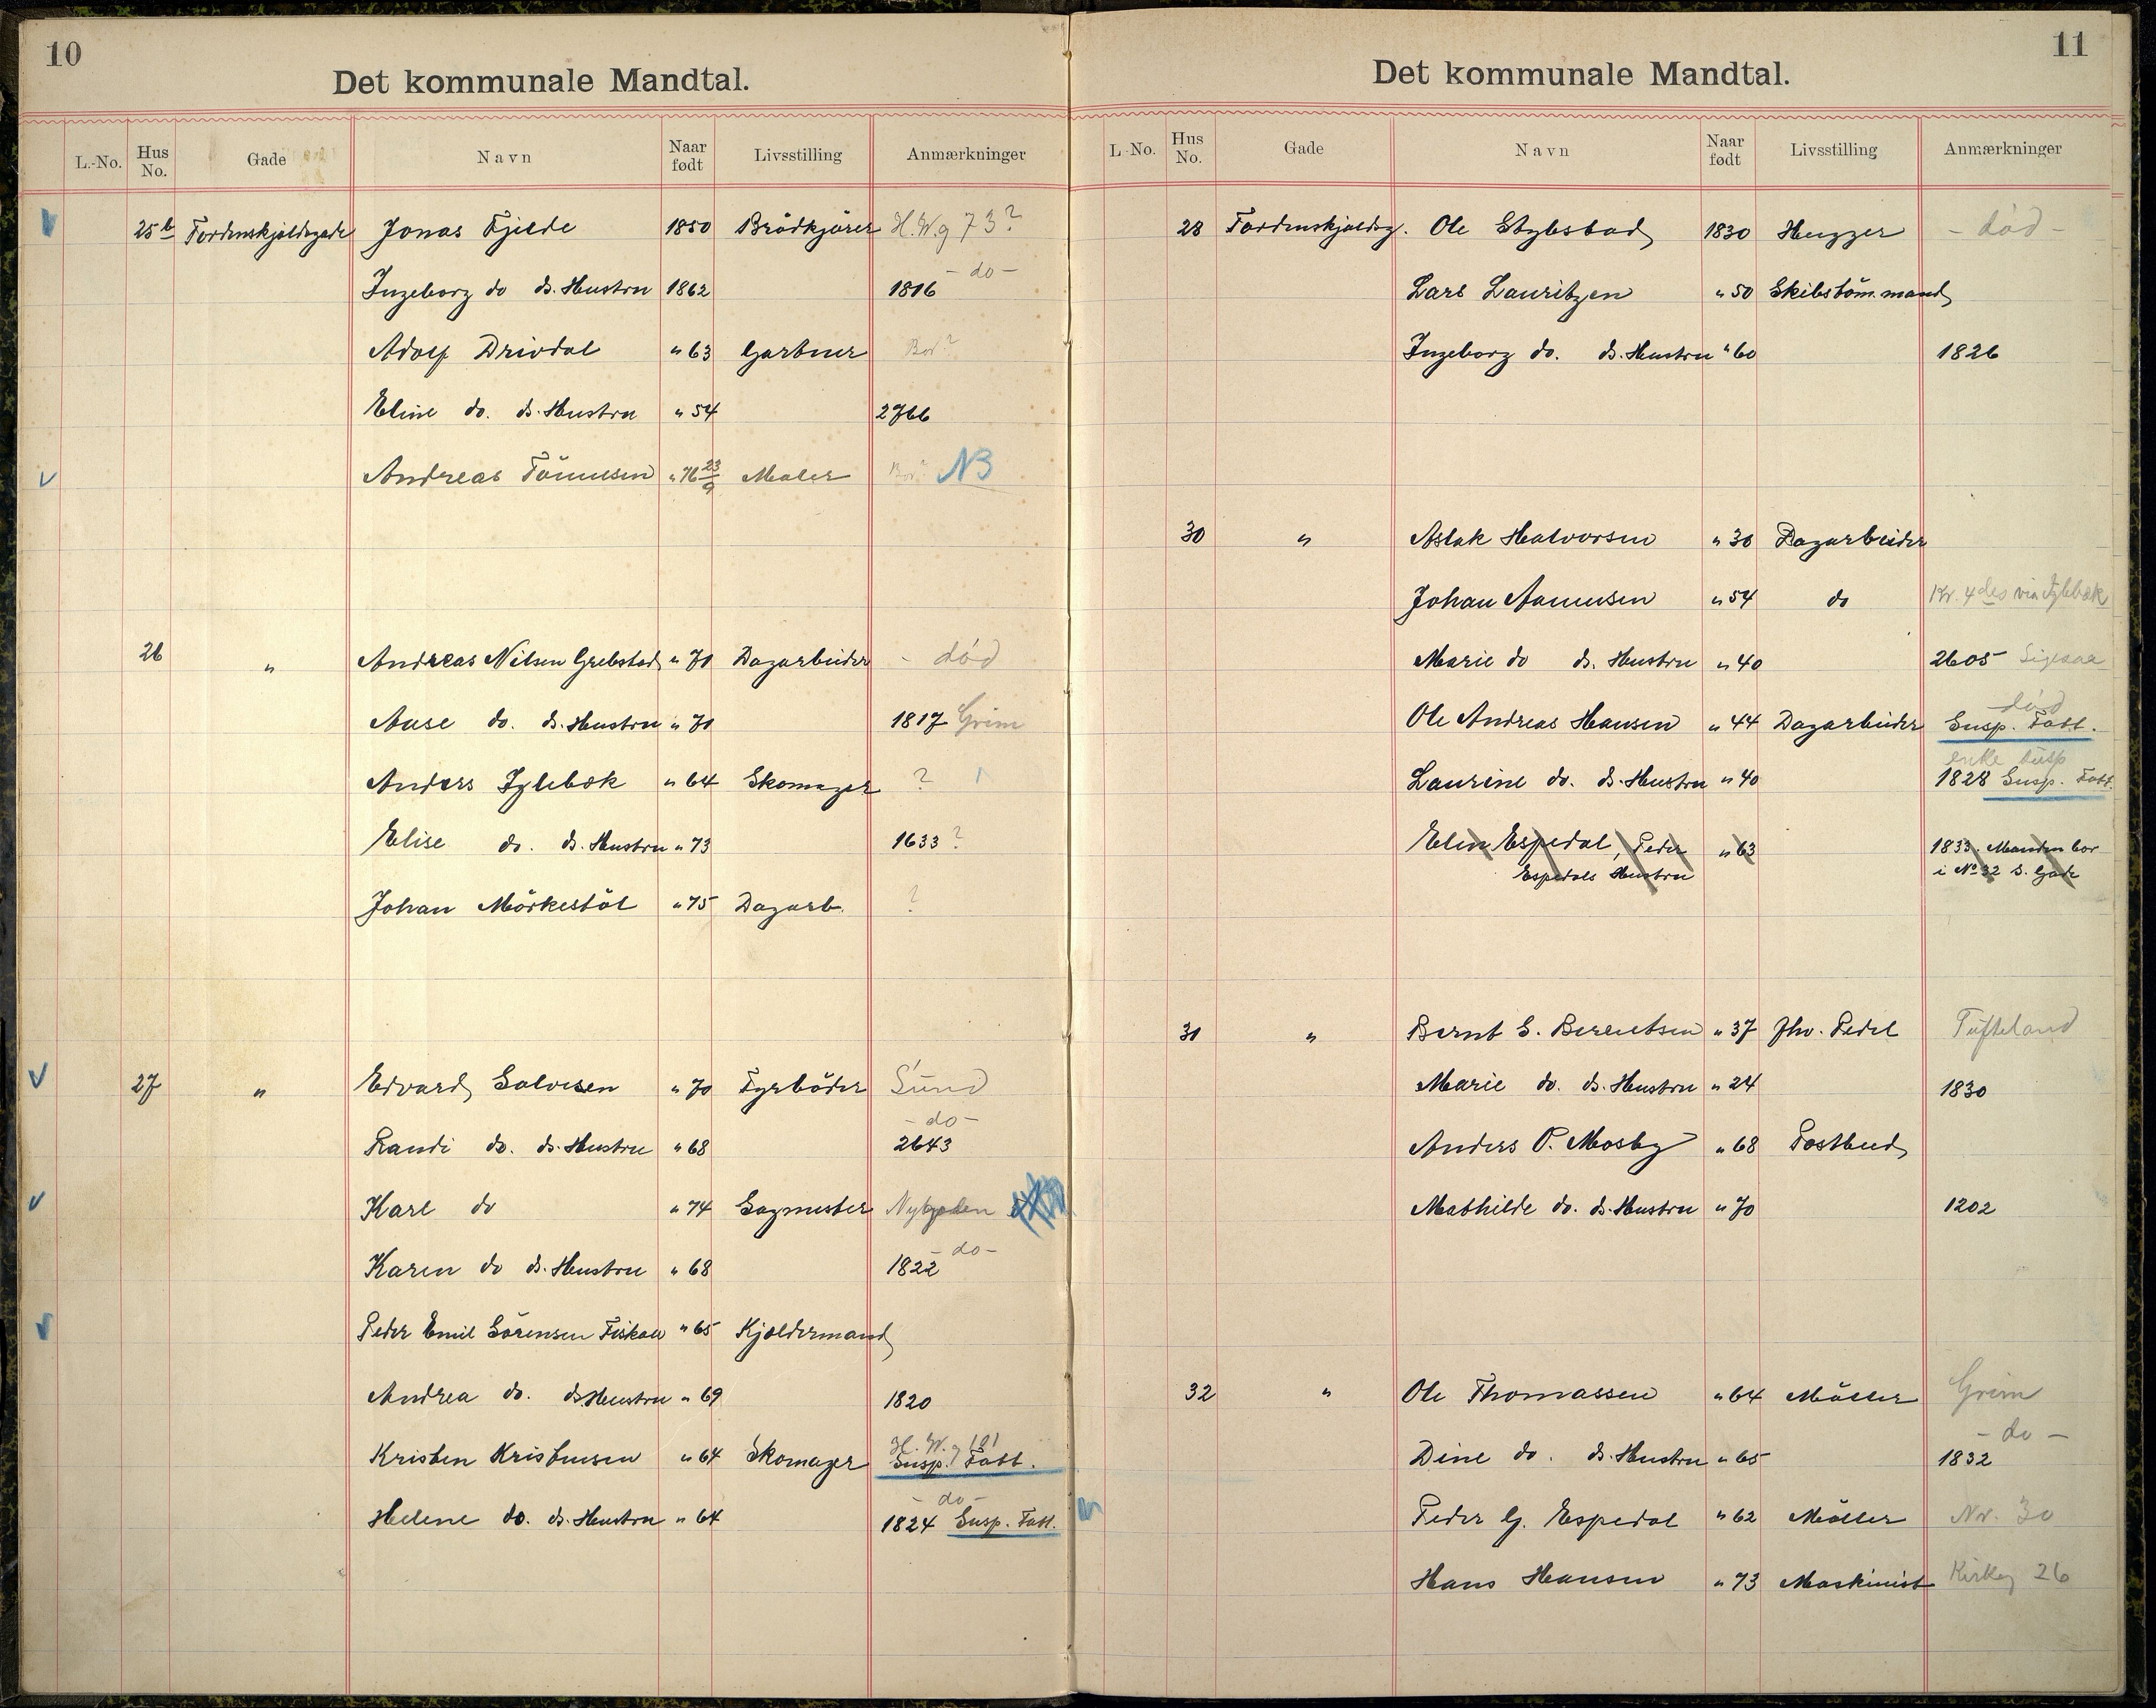 10
Det kommunale Mandtal.
L.-No. Hus No. Gade Navn Naar født Livsstilling Anmærkninger
25b Tordenskjoldsgade Jonas Fjelde 1850 Brödkjörer H.W.g 73?
- do -
Ingeborg do ds. Hustru 1862 1816
Adolf Drivdal " 63 Gartner Bor?
Eline do. ds. Hustru " 54 2766
Andreas Tönnesen " 76 23/9 Maler Bor? NB
26 " Andreas Nilsen Grebstad " 70 Dagarbeider - död
Aase do. ds. Hustru " 70 1817 Grim
Anders Iglebæk " 64 Skomager ?
Elise do. ds. Hustru " 73 1633 ?
Johan Mörkestöl " 75 Dagarb. ?
27 " Edvard Salvesen " 70 Fyrböder Sund
- do -
Randi do. ds. Hustru " 68 2643
Karl do " 74 Sagmester Nybyen
Karen do ds. Hustru " 68 1822 - do -
Peder Emil Sörensen Fiskaa " 65 Kjældermand
Andrea do. ds Hustru " 69 1820
H. W. g 101
Kristen Kristensen " 64 Skomager Susp. Fatt.
- do -
Helene do. ds. Hustru " 64 1824 Susp. Fatt.
11
Det kommunale Mandtal.
L-No. Hus No. Gade Navn Naar født Livsstilling Anmærkninger
28 Tordenskjoldsg. Ole Stylestad 1830 Hugger - död -
Lars Lauritzen " 50 Skibstöm.mand
Ingeborg do. ds. Hustru " 60 1826
30 " Aslak Halvorsen " 30 Dagarbeider
Johan Aanensen " 54 do Kr. 4des via Iglebæk
Marie do ds. Hustru " 40 2605
död
Ole Andreas Hansen " 44 Dagarbeider Susp. Fatt.
enke susp
Laurine do. ds. Hustru " 40 1828 Susp. Fatt.
Elen Espedal, Peder " 63 1833. Manden bor
Espedals Hustru i No 32 S. Gade
31 " Bernt S. Berentsen " 37 fhv. Pedel Tufteland
Marie do. ds. Hustru " 24 1830
Anders P. Mosby " 68 Postbud
Mathilde do. ds. Hustru " 70 1202
32 " Ole Thomassen " 64 Möller Grim
- do -
Dine do. ds. Hustru " 65 1832
Peder G. Espedal " 62 Möller Nr. 30
Hans Hansen " 73 Maskinist Kirkeg 26